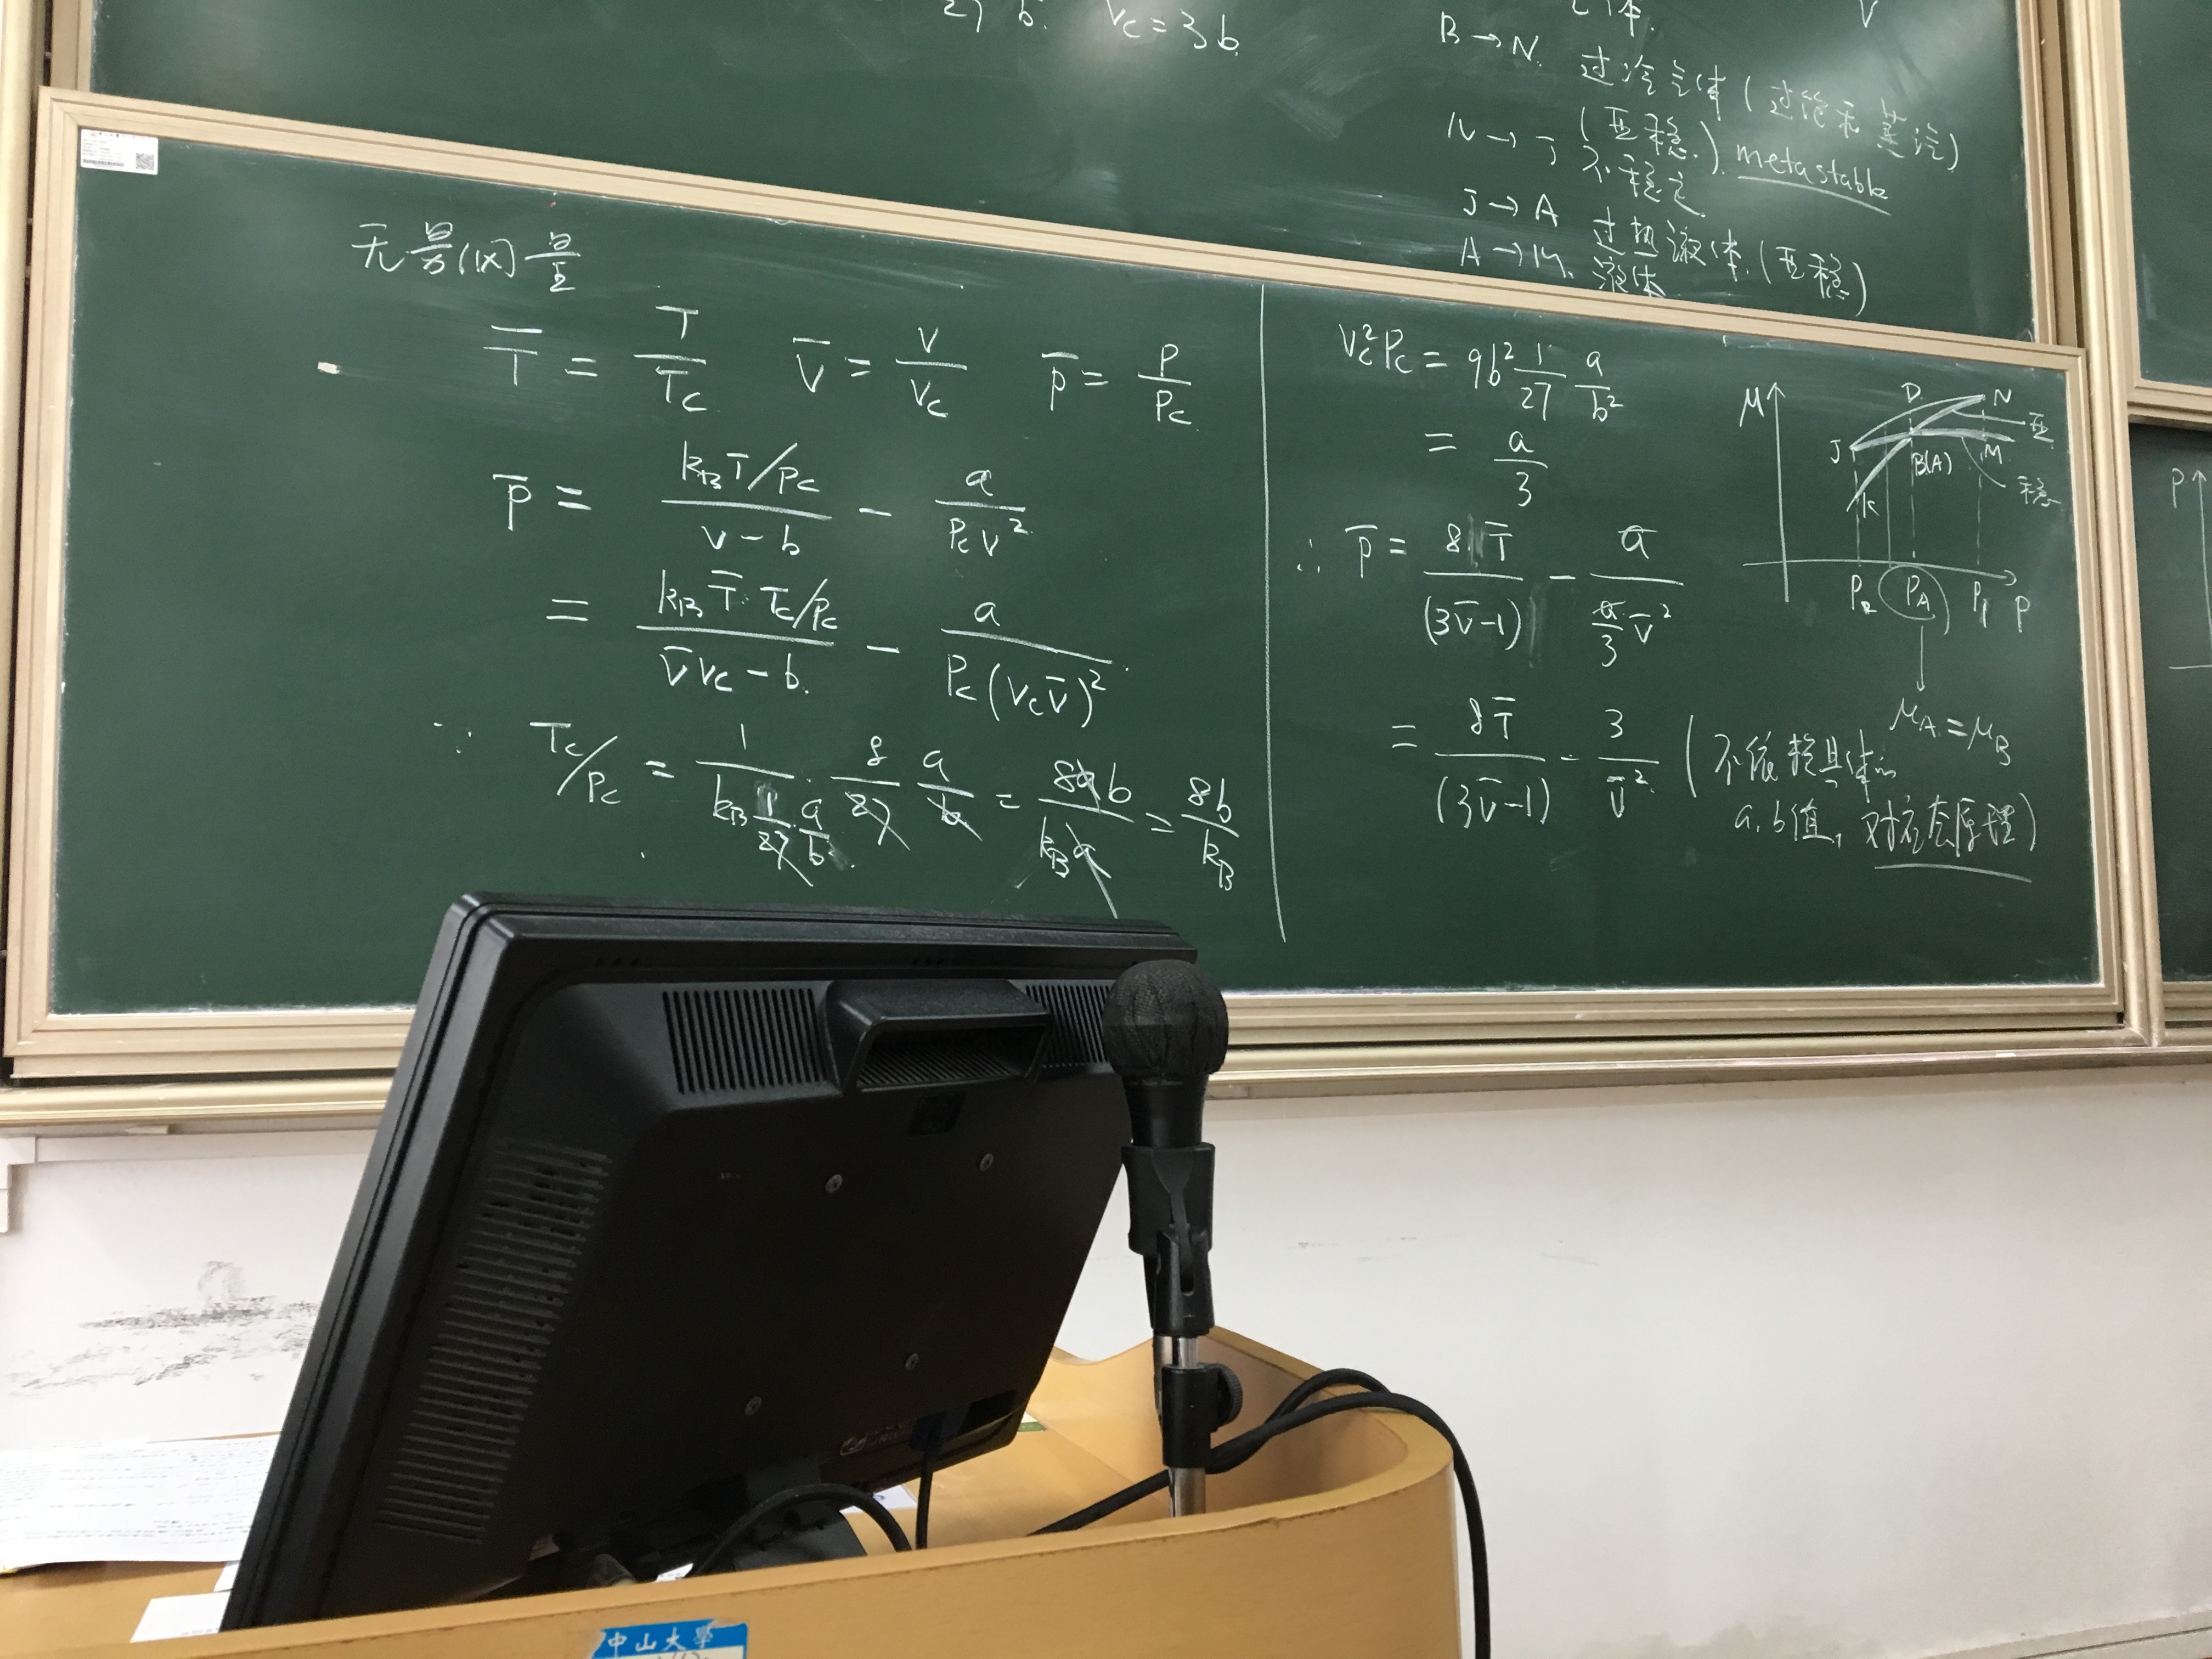 27 b. V_C = 3b.
V
B → N. 过冷气体 (过饱和蒸汽)
(亚稳.) metastable
N → J 不稳定.
J → A 过热液体. (亚稳)
A → M. 液体.
无量纲量
T̄ = T/T_C V̄ = V/V_C p̄ = P/P_C
p̄ = (k_B T/P_C)/(v-b) - a/(P_C v²)
= (k_B T̄ · T_C/P_C)/(v̄ V_C - b.) - a/(P_C (V_C v̄)²)
∵ T_C/P_C = 1/(k_B 1/27 · a/b²) · 8/27 a/b = 8ab/(k_B a) = 8b/k_B
V_C² P_C = 9b² 1/27 a/b²
= a/3
∴ p̄ = 8T̄/(3v̄-1) - a/((a/3) v̄²)
= 8T̄/(3v̄-1) - 3/v̄² (不依赖具体的
a, b值, 对应态原理)
μ
D N
亚
J B(A) M
稳
K
P₂ P_A P₁ P
μ_A = μ_B
P
中山大學